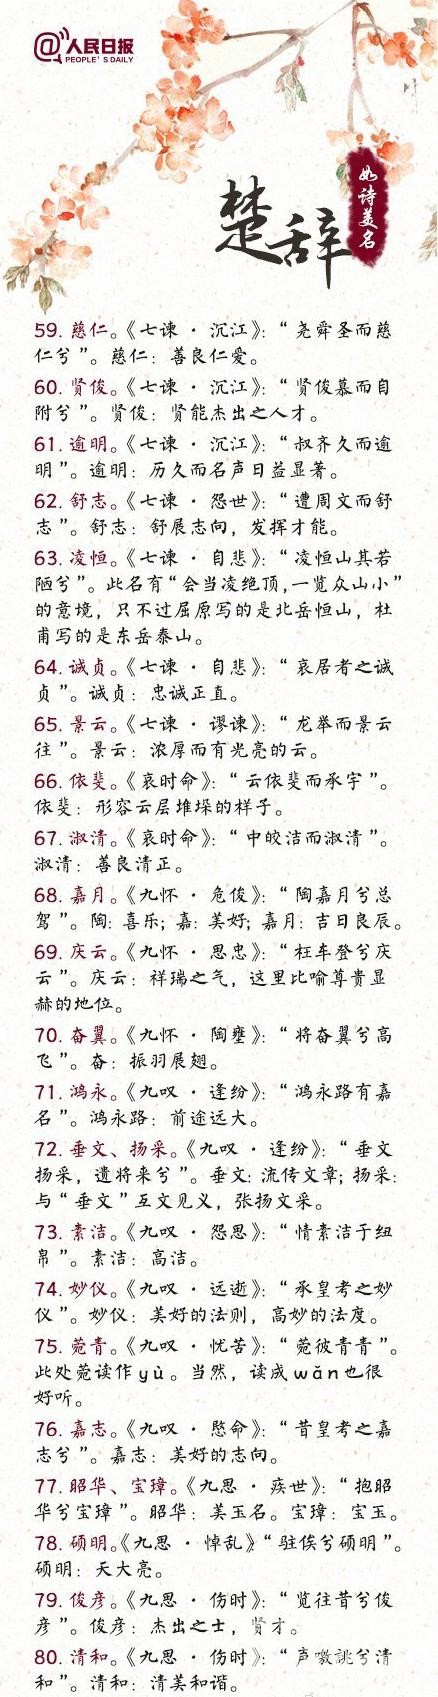 @人民日报
PEOPLE'S DAILY
楚辞
如诗美名
59. 慈仁。《七谏·沉江》：“尧舜圣而慈
仁兮”。慈仁：善良仁爱。
60. 贤俊。《七谏·沉江》：“贤俊慕而自
附兮”。贤俊：贤能杰出之人才。
61. 逾明。《七谏·沉江》：“叔齐久而逾
明”。逾明：历久而名声日益显著。
62. 舒志。《七谏·怨世》：“遭周文而舒
志”。舒志：舒展志向，发挥才能。
63. 凌恒。《七谏·自悲》：“凌恒山其若
陋兮”。此名有“会当凌绝顶,一览众山小”
的意境，只不过屈原写的是北岳恒山，杜
甫写的是东岳泰山。
64. 诚贞。《七谏·自悲》：“哀居者之诚
贞”。诚贞：忠诚正直。
65. 景云。《七谏·谬谏》：“龙举而景云
往”。景云：浓厚而有光亮的云。
66. 依斐。《哀时命》：“云依斐而承宇”。
依斐：形容云层堆垛的样子。
67. 淑清。《哀时命》：“中皎洁而淑清”。
淑清：善良清正。
68. 嘉月。《九怀·危俊》：“陶嘉月兮总
驾”。陶：喜乐；嘉：美好；嘉月：吉日良辰。
69. 庆云。《九怀·思忠》：“枉车登兮庆
云”。庆云：祥瑞之气，这里比喻尊贵显
赫的地位。
70. 奋翼。《九怀·陶壅》：“将奋翼兮高
飞”。奋：振羽展翅。
71. 鸿永。《九叹·逢纷》：“鸿永路有嘉
名”。鸿永路：前途远大。
72. 垂文、扬采。《九叹·逢纷》：“垂文
扬采，遗将来兮”。垂文：流传文章；扬采：
与“垂文”互文见义，张扬文采。
73. 素洁。《九叹·怨思》：“情素洁于纽
帛”。素洁：高洁。
74. 妙仪。《九叹·远逝》：“承皇考之妙
仪”。妙仪：美好的法则，高妙的法度。
75. 菀青。《九叹·忧苦》：“菀彼青青”。
此处菀读作yù。当然，读成wǎn也很
好听。
76. 嘉志。《九叹·愍命》：“昔皇考之嘉
志兮”。嘉志：美好的志向。
77. 昭华、宝璋。《九思·疾世》：“抱昭
华兮宝璋”。昭华：美玉名。宝璋：宝玉。
78. 硕明。《九思·悼乱》“驻俟兮硕明”。
硕明：天大亮。
79. 俊彦。《九思·伤时》：“览往昔兮俊
彦”。俊彦：杰出之士，贤才。
80. 清和。《九思·伤时》：“声噭誂兮清
和”。清和：清美和谐。